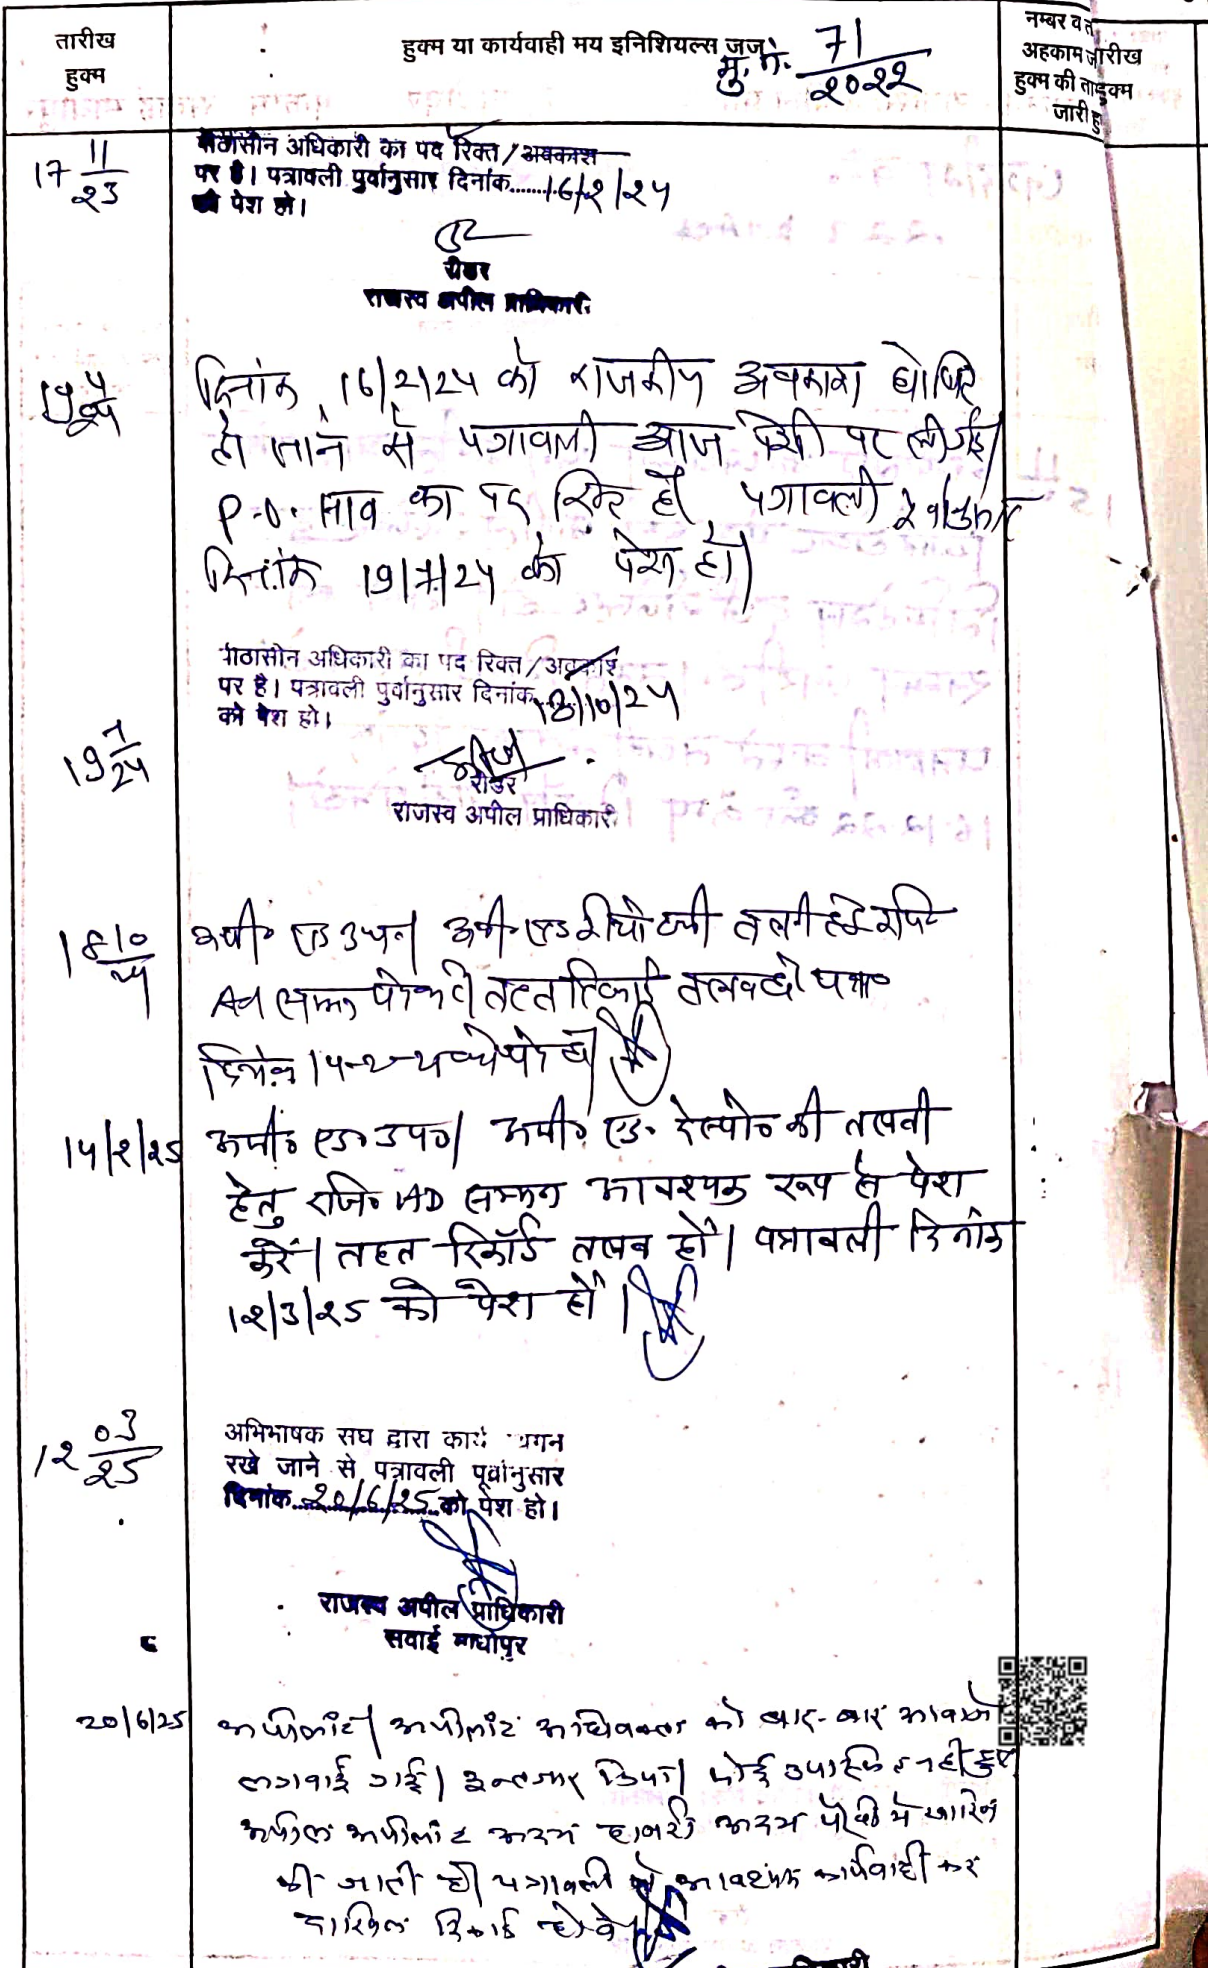 तारीख
हुक्म
हुक्म या कार्यवाही मय इनिशियल्स जज
मु. नं. 71/2022
नम्बर व त
अहकाम जारीख
हुक्म की ता हुक्म
जारी हु
17 11/23
पीठासीन अधिकारी का पद रिक्त / अवकाश
पर है। पत्रावली पुर्वानुसार दिनांक......16/2/24
को पेश हो।
रीडर
राजस्व अपील प्राधिकारी
19 4/24
दिनांक 16/2/24 को राजकीय अवकाश घोषित
हो जाने से पत्रावली आज पेशी पर ली गई।
P.O. साब का पद रिक्त है। पत्रावली
दिनांक 19/7/24 को पेश हो।
पीठासीन अधिकारी का पद रिक्त / अवकाश
पर है। पत्रावली पुर्वानुसार दिनांक 18/10/24
को पेश हो।
19 7/24
रीडर
राजस्व अपील प्राधिकारी
18 10/24
अपी० एड उप०। अपी० एड रेस्पो० की तलबी हेतु रजि०
AD सम्मन पेश करे। तहत रिकार्ड तलब हो। पत्रा०
दिनांक 14-2-25 को पेश हो।
14/2/25
अपी० एड० उप०। अपी० एड० रेस्पो० की तलबी
हेतु रजि० AD सम्मन आवश्यक रूप से पेश
करें। तहत रिकॉर्ड तलब हो। पत्रावली दिनांक
12/3/25 को पेश हो।
12 03/25
अभिभाषक संघ द्वारा कार्य स्थगन
रखे जाने से पत्रावली पूर्वानुसार
दिनांक 20/6/25 को पेश हो।
राजस्व अपील प्राधिकारी
सवाई माधोपुर
20/6/25
अपीलांट। अपीलांट अधिवक्ता को बार-बार आवाजे
लगवाई गई। इन्तजार किया। कोई उपस्थित नहीं हुए
अपील अपीलांट अदम हाजरी अदम पैरवी में खारिज
की जाती है। पत्रावली आवश्यक कार्यवाही कर
दाखिल रिकार्ड होवे।